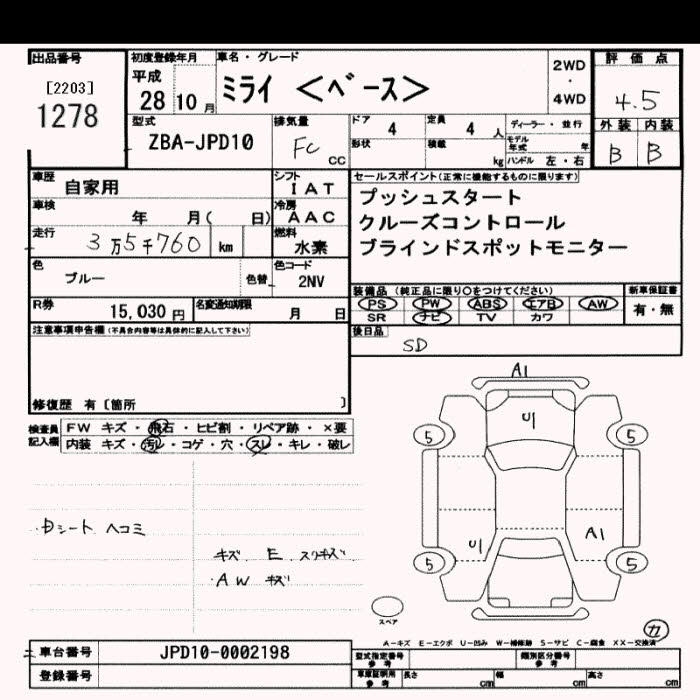 出品番号
[2203]
1278
初度登録年月
平成
28 10 月
車名・グレード
ミライ <ベース>
2WD
・
4WD
評価点
4.5
外装 内装
B B
型式
ZBA-JPD10
排気量
FC
CC
ドア 4
形状
定員 4 人
積載 kg
ディーラー・並行
モデル年式 年
ハンドル 左・右
車歴
自家用
シフト
IAT
車検
年 月( 日)
冷房
AAC
走行
3万5千760 km
燃料
水素
色
ブルー
色替
色コード
2NV
R券
15,030 円
名変通知期限
月 日
セールスポイント(正常に機能するものに限ります)
プッシュスタート
クルーズコントロール
ブラインドスポットモニター
装備品 (純正品に限り○をつけてください)
PS PW ABS エアB AW
SR ナビ TV カワ
新車保証書
有・無
後日品
SD
注意事項申告欄(不具合内容等は具体的に記入して下さい)
修復歴 有〔箇所 〕
検査員記入欄
FW キズ・飛石・ヒビ割・リペア跡・×要
内装 キズ・汚レ・コゲ・穴・スレ・キレ・破レ
・Dシート ヘコミ
キズ E スリキズ
・AW キズ
A1
U1
5
5
U1
A1
5
5
スペア
カ
A－キズ E－エクボ U－凹み W－補修跡 S－サビ C－腐食 XX－交換済
車台番号
JPD10-0002198
登録番号
型式指定番号
参考
類別区分番号
参考
車庫証明用
参考
長さ cm
幅 cm
高さ cm